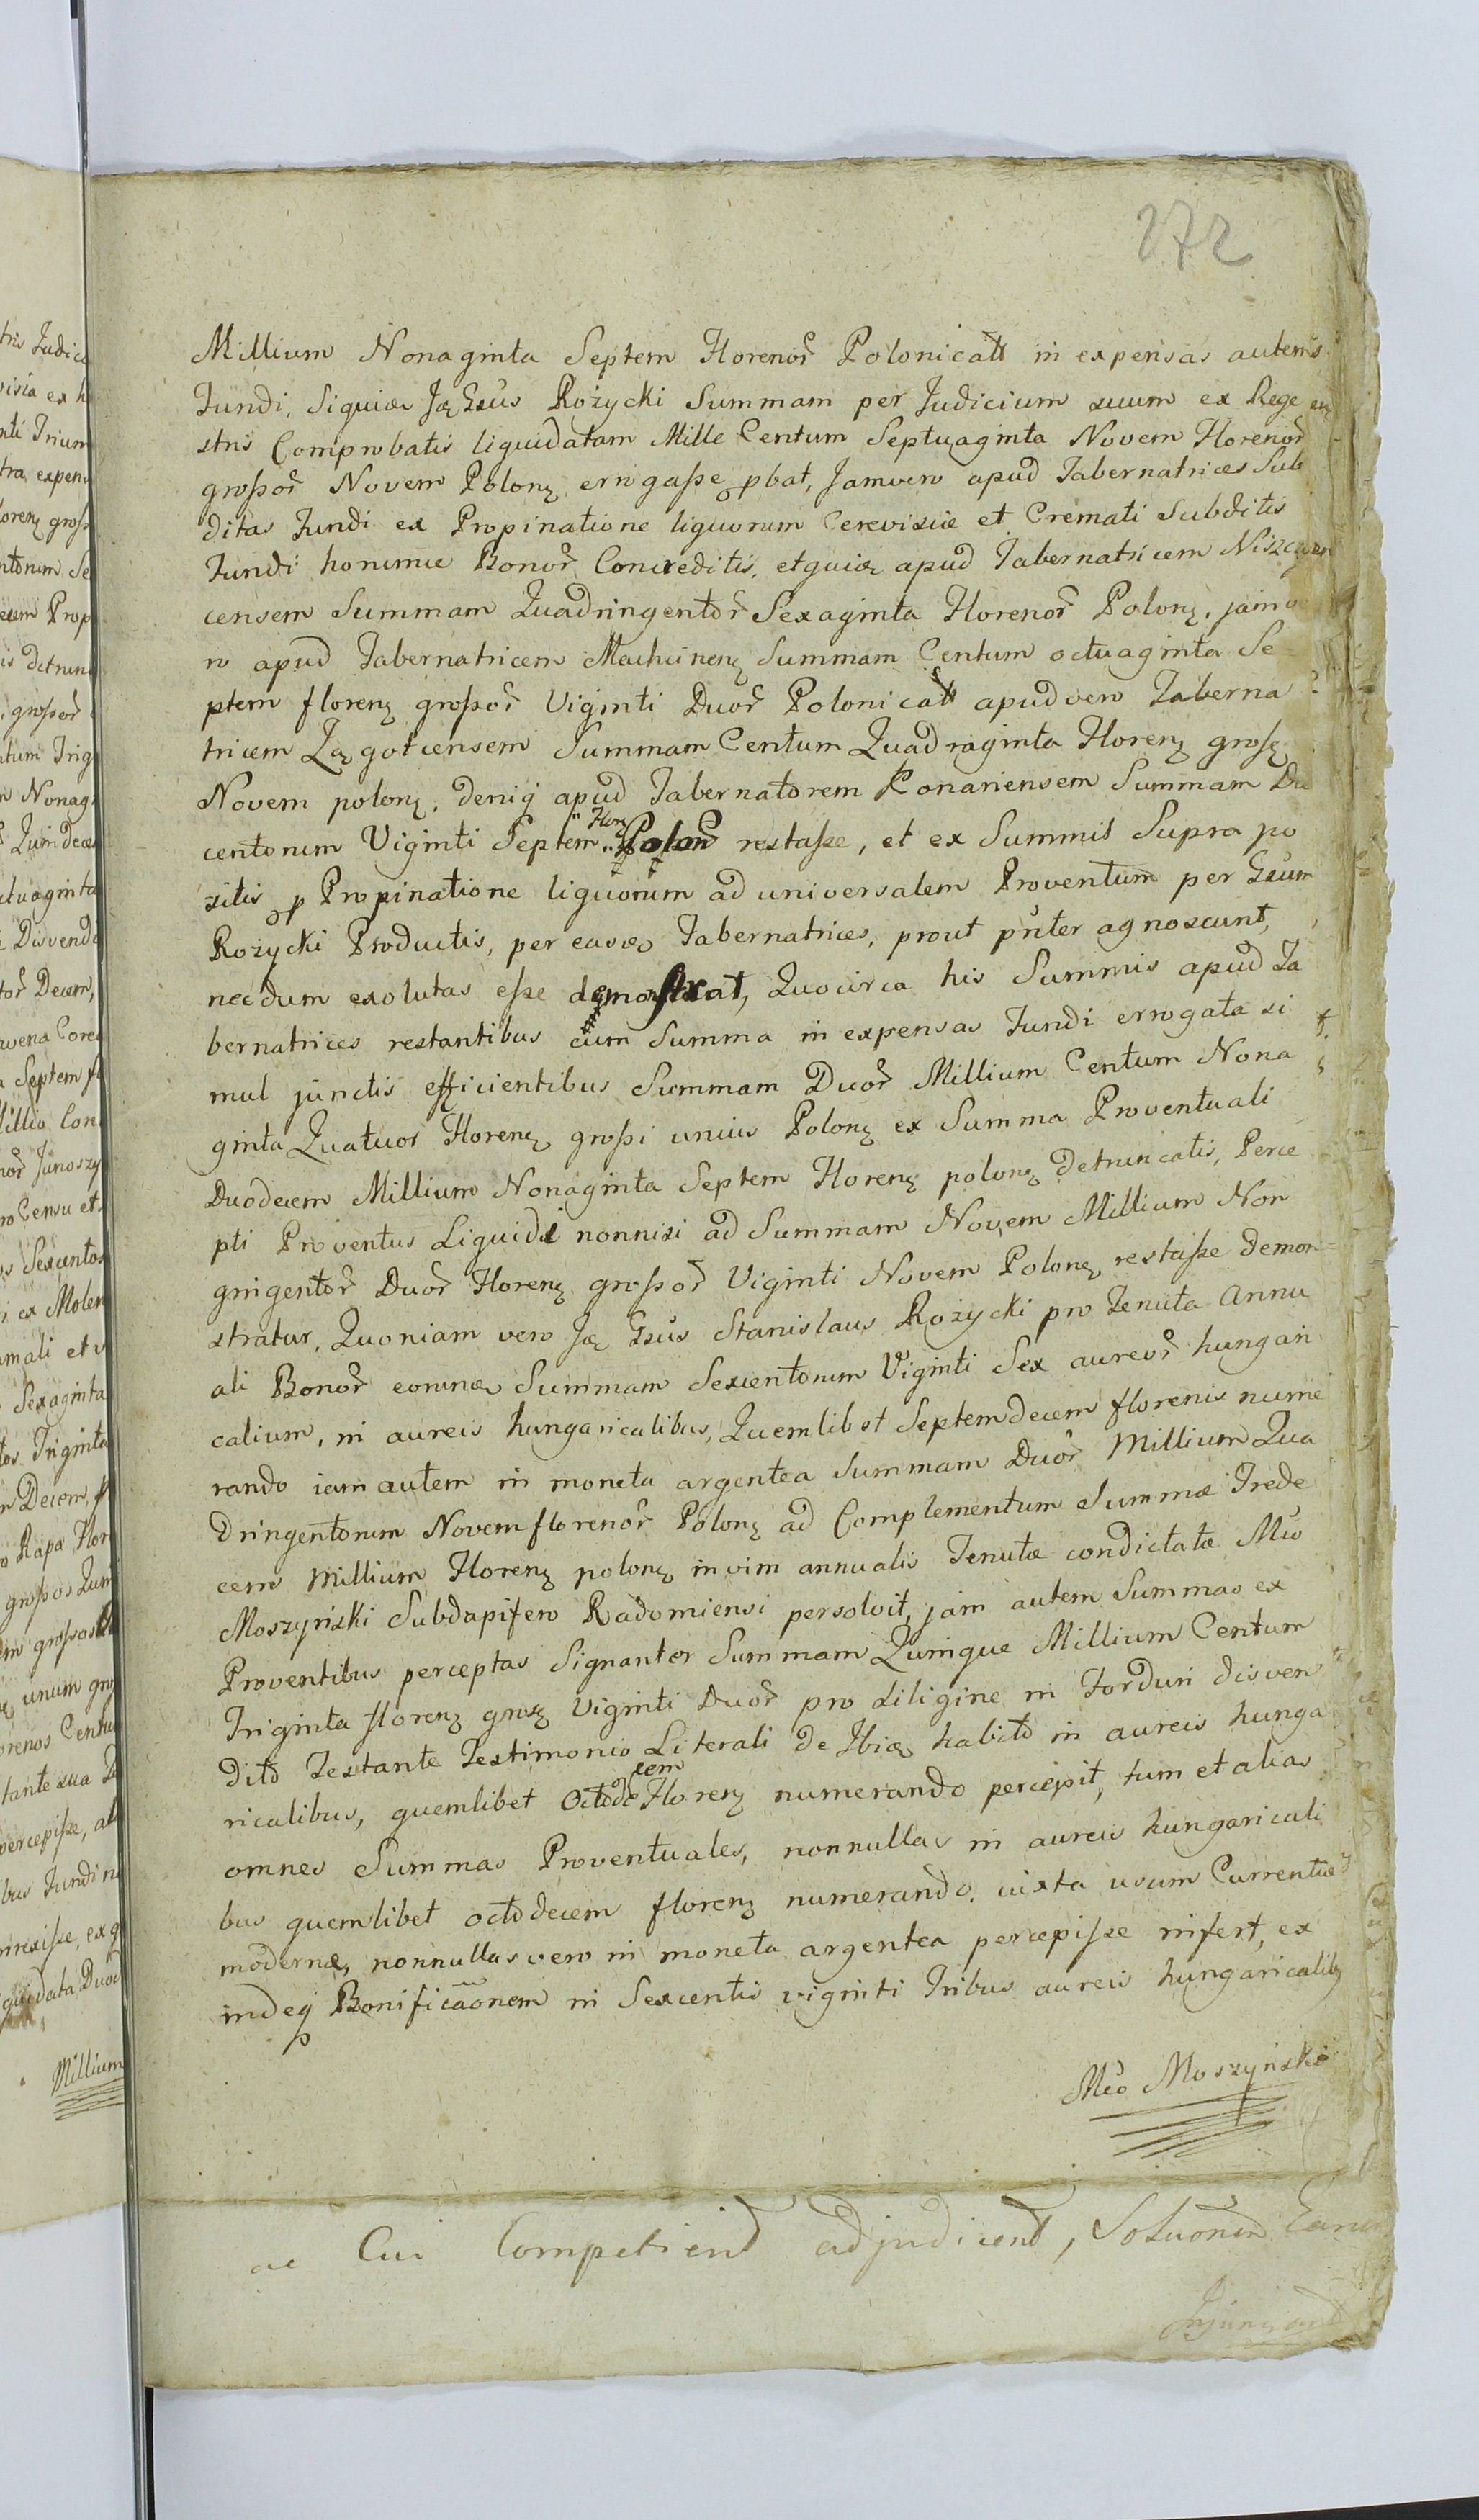 272
Millium Nonaginta Septem Florenor̃ Polonicałł in expensas autem
Fundi, Siquiae Ję Gsũs Rożycki Summam per Judicium suum ex Rege
stris Comprobatis liquidatam Mille Centum Septuaginta Novem Florenor̃
großor̃ Novem Polonꝫ erogaße pbat, Jamvero apud Tabernatrices Sub
ditas Fundi ex Propinatione liquorum Cerevisiæ et Cremati Subditis
Fundi horumce Bonor̃ Concreditis, etquiæ apud Tabernatricem
censem Summam Quadringentor̃ Sexaginta Florenor̃ Polonꝫ, jamve
ro apud Tabernatricem Machcinenꝫ Summam Centum octuaginta Se
ptem florenꝫ großor̃ Viginti Duor̃ Polonicałł apud vero Taberna
tricem Zągotcensem Summam Centum Quadraginta Florenꝫ großꝫ
Novem polonꝫ, deniq apud Tabernatorem Konariensem Summam Du
centorum Viginti Septem Florꝫ Polon̄ restaße, et ex Summis Supra po
sitis p Propinatione liquorum ad universalem Proventum per Gsũm
Rożycki Productis, per easqꝫ Tabernatrices, prout pñter agnoscunt,
necdum exolutas eße demonstrat, Quocirca his Summis apud Ta
bernatrices restantibus cum Summa in expensas Fundi errogata si
mul junctis efficientibus Summam Duor̃ Millium Centum Nona
ginta Quatuor Florenꝫ großi unius Polonꝫ ex Summa Proventuali
Duodecem Millium Nonaginta Septem Florenꝫ polonꝫ detruncatis, Perce
pti Proventus Liquidi nonnisi ad Summam Novem Millium Non
gnigentor̃ Duor̃ Florenꝫ großor̃ Viginti Novem Polonꝫ restaße demon=
stratur, Quoniam vero Ję Gsũs Stanislaus Rożycki pro Tenuta annu
ali Bonor̃ eorunꝫ Summam Sexcentorum Viginti Sex aureor̃ hungari
calium, in aureis hungaricalibus, Quemlibet Septemdecem florenis nume
rando iam autem in moneta argentea Summam Duor̃ Millium Qua
dringentorum Novem florenor̃ Polonꝫ ad Complementum Summæ Trede
cem Millium Florenꝫ polonꝫ in vim annualis Tenutæ condictatæ Mco
Moszyński Subdapifero Radomiensi persolvit, jam autem Summas ex
Proventibus perceptas Signanter Summam Quinque Millium Centum
Triginta florenꝫ grosꝫ Viginti Duor̃ pro siligine in Torduń disven
dito Testante Testimonio Literali de Ibiæ habito in aureis hunga
ricalibus, quemlibet Octodecem Florenꝫ numerando percepit, tum et alias
omnes Summas Proventuales, nonnullas in aureis hungaricali
bus quemlibet octodecem florenꝫ numerando, iuxta usum Currentiæ
modernæ, nonnullas vero in moneta argentea percepiße infert, ex
indeq Bonificãonem in Sexcentis viginti Tribus aureis hungaricalibꝫ
p
Mco Moszyński
ac Cui Competiend adjudicend, Solũonem